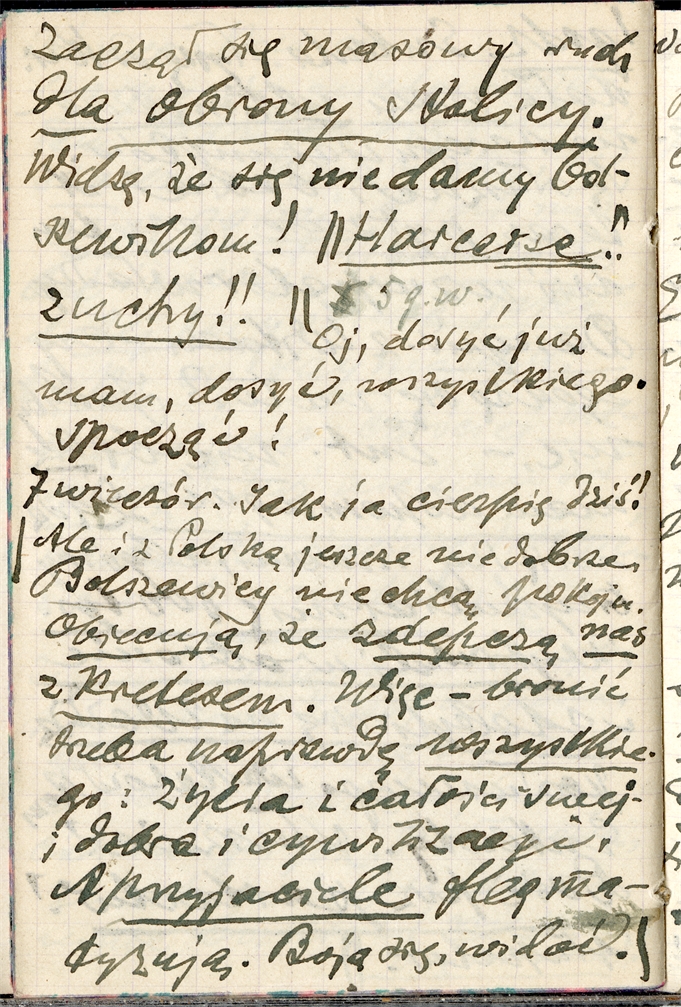 Zaczął się masowy ruch
dla obrony Stolicy.
Widzę, że się nie damy bol-
szewikom! "Harcerze."
zuchy!! " 5 g. w.
Oj, dosyć już
mam, dosyć, wszystkiego.
Spocząć!
7 wieczór. Jak ja cierpię dziś!
Ale i z Polską jeszcze niedobrze.
Bolszewicy nie chcą pokoju.
Obiecują, że zdepczą nas
z kretesem. Więc – bronić
trzeba naprawdę wszystkie-
go: Życia i całości swej-
i dobra i cywilizacji.
A przyjaciele flegma-
tyzują. Boją się, widać.